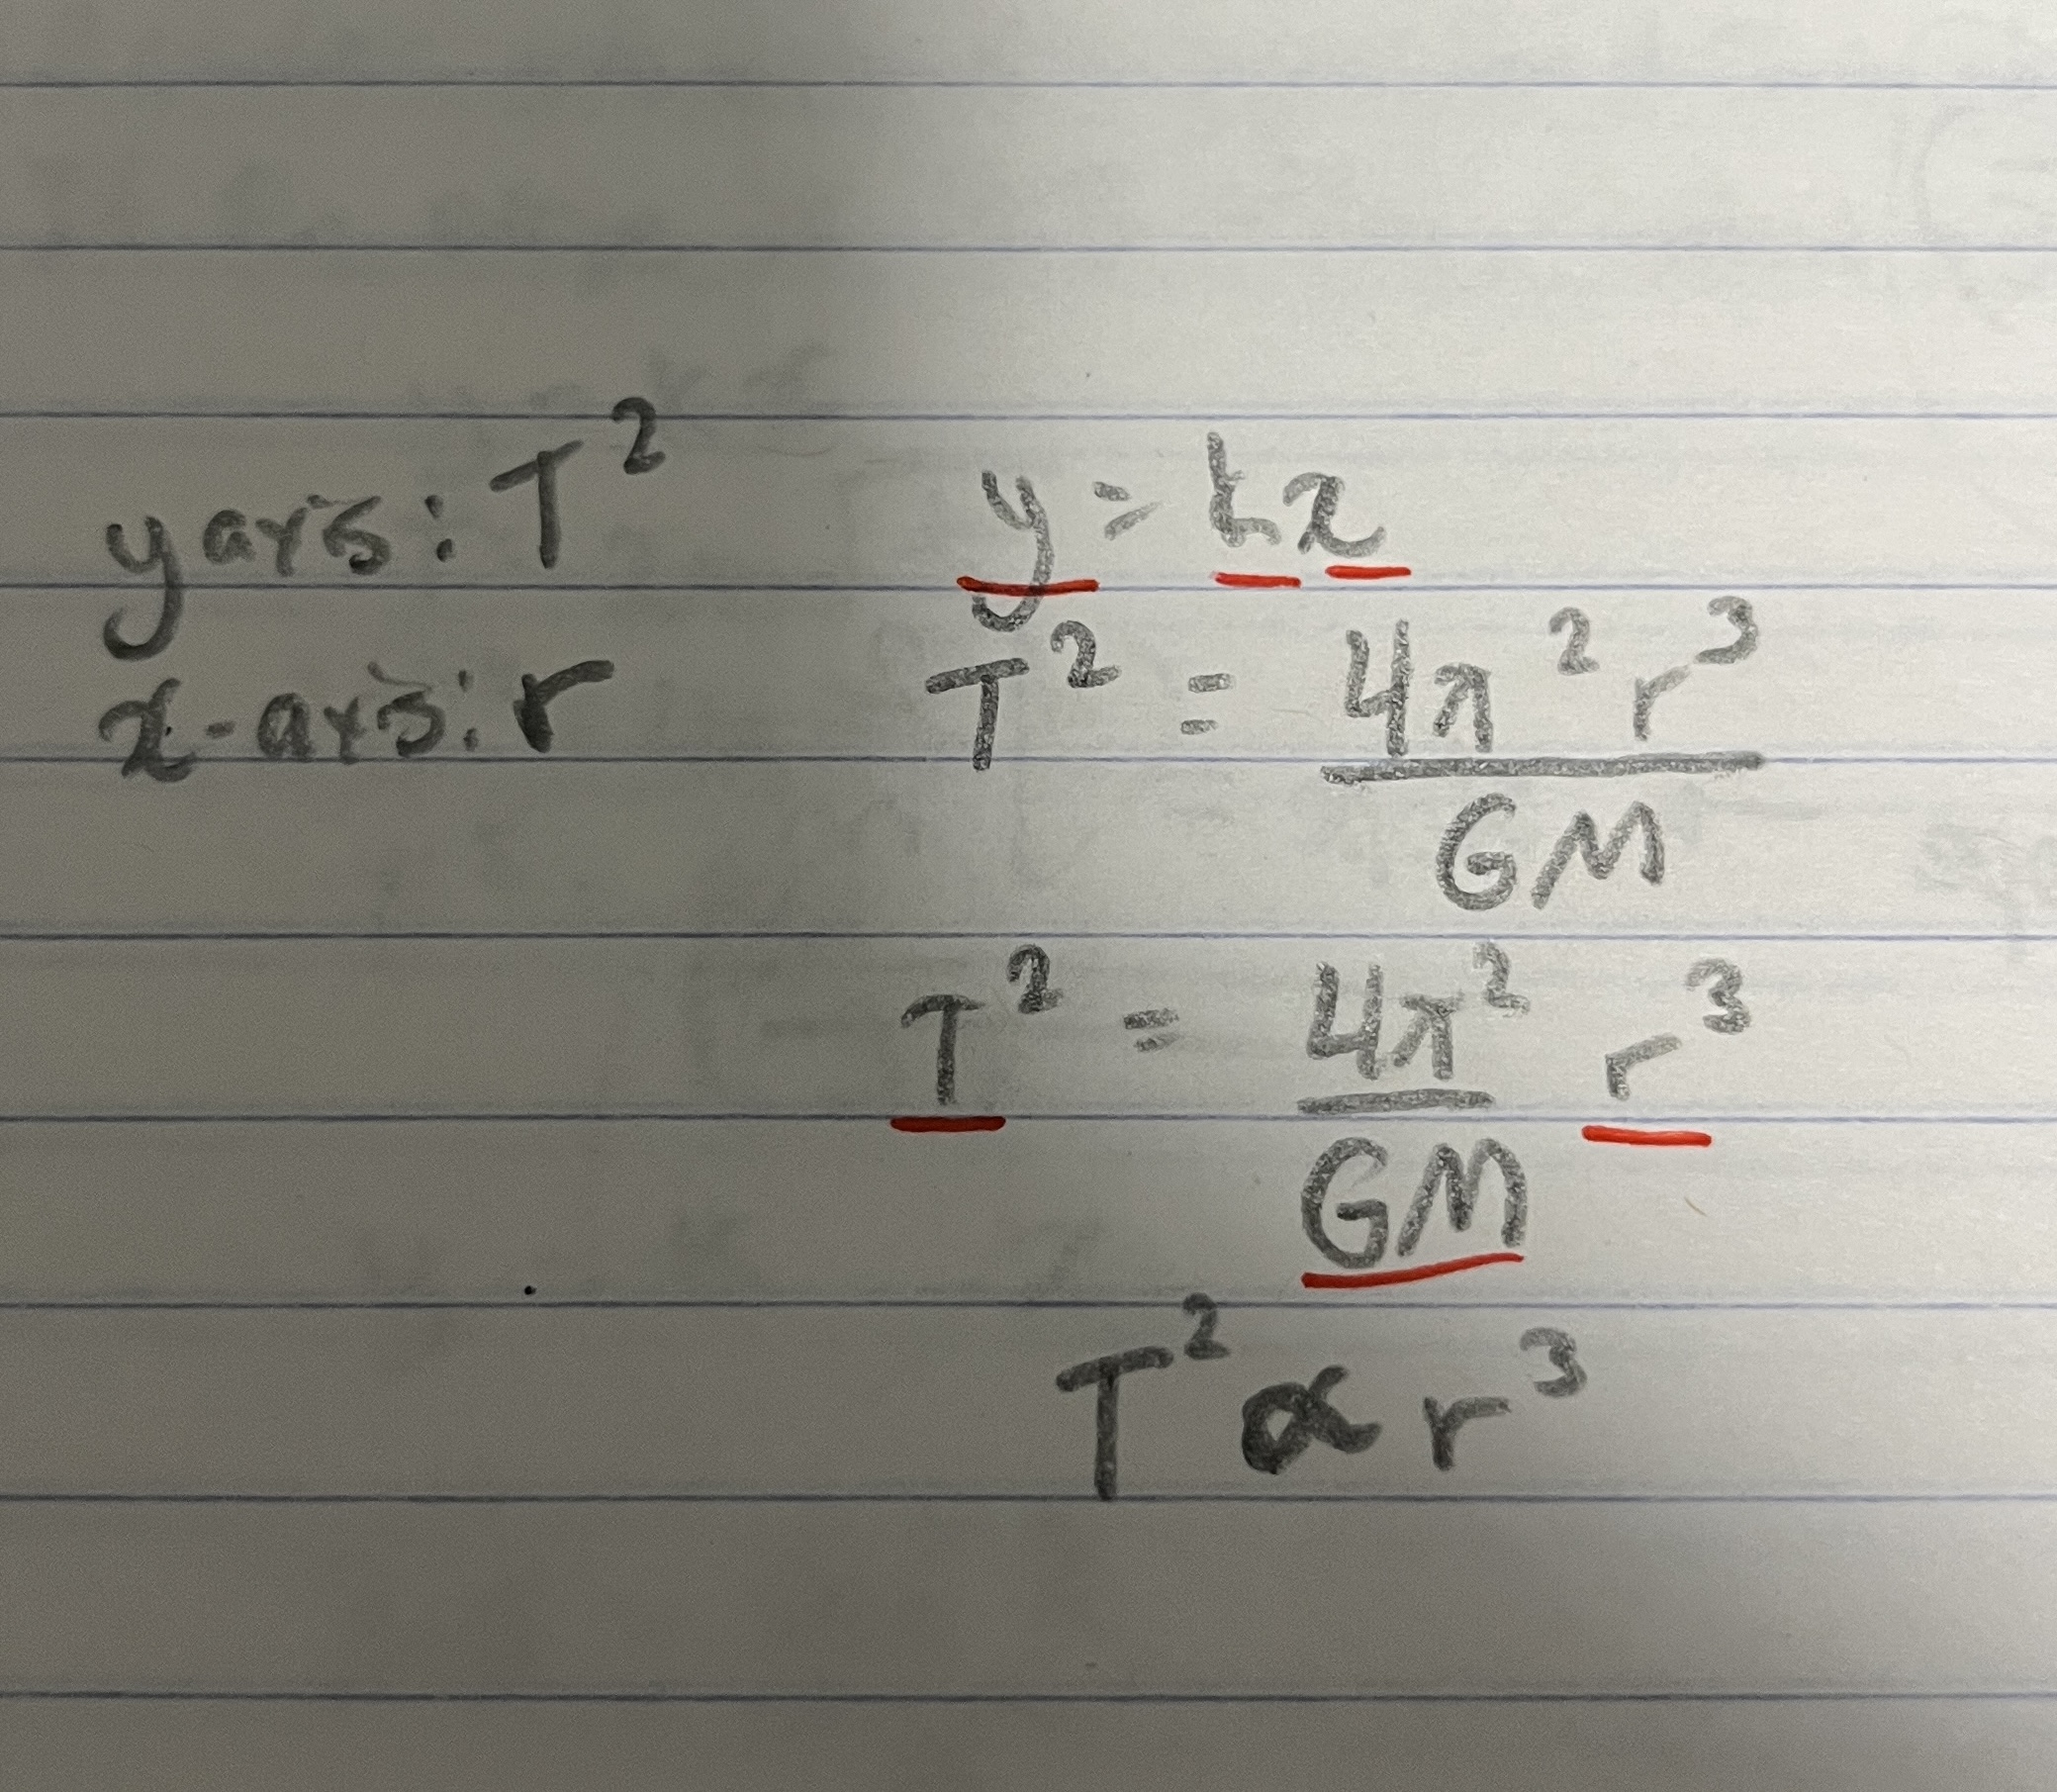 y axis: T²
x-axis: r
y = kx
T² = 4π²r³ / GM
T² = 4π² / GM r³
T² ∝ r³